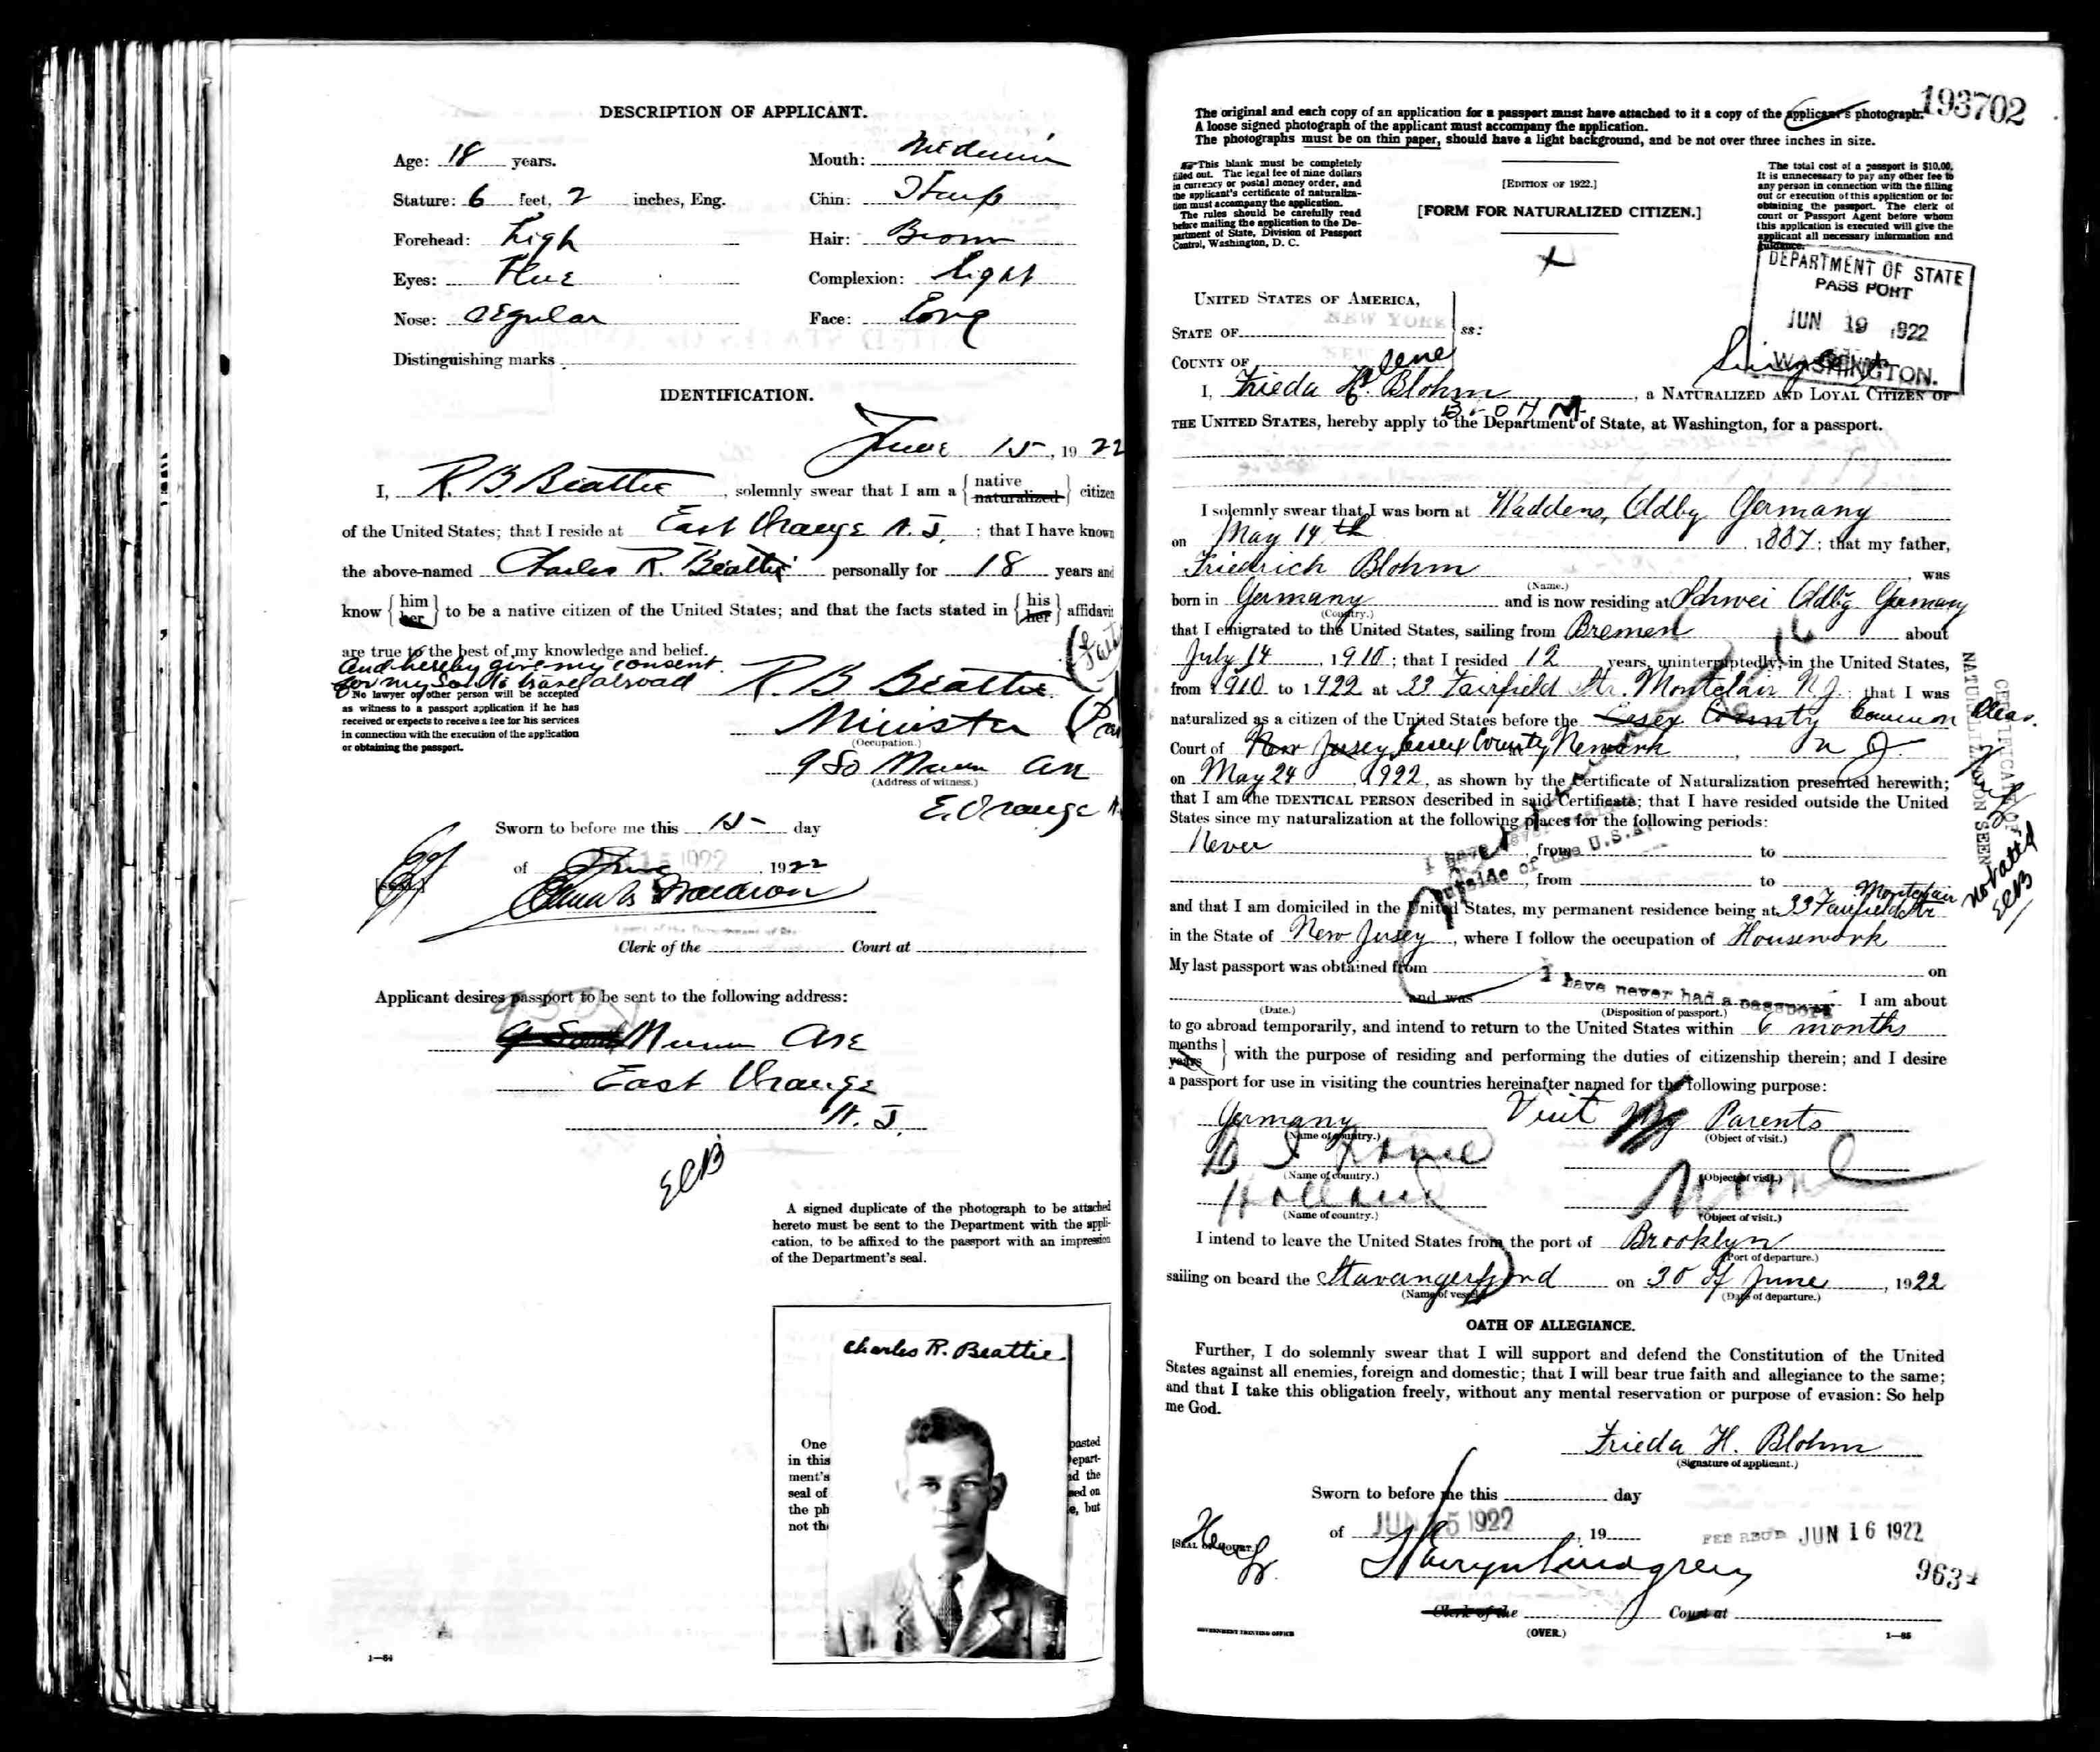 DESCRIPTION OF APPLICANT.
Age: 18 years.
Mouth: Medium
Stature: 6 feet, 2 inches, Eng.
Chin: Sharp
Forehead: High
Hair: Brown
Eyes: Blue
Complexion: Light
Nose: Regular
Face: Long
Distinguishing marks
IDENTIFICATION.
June 15, 1922
I, R. B. Beattie, solemnly swear that I am a { native naturalized } citizen
of the United States; that I reside at East Orange N. J. ; that I have known
the above-named Charles R. Beattie personally for 18 years and
know { him her } to be a native citizen of the United States; and that the facts stated in { his her } affidavit
are true to the best of my knowledge and belief.
and hereby give my consent
for my son to travel abroad
No lawyer or other person will be accepted
as witness to a passport application if he has
received or expects to receive a fee for his services
in connection with the execution of the application
or obtaining the passport.
R B Beattie
Minister
(Occupation.)
9 So Munn Ave
(Address of witness.)
E. Orange N.
Sworn to before me this 15 day
of June, 1922
[SEAL.]
Clerk of the Court at
Applicant desires passport to be sent to the following address:
9 South Munn Ave
East Orange
N. J.
ECB
A signed duplicate of the photograph to be attached
hereto must be sent to the Department with the appli-
cation, to be affixed to the passport with an impression
of the Department's seal.
Charles R. Beattie
One pasted
in this Depart-
ment's nd the
seal of sed on
the ph e, but
not th
1—64
193702
The original and each copy of an application for a passport must have attached to it a copy of the applicant's photograph.
A loose signed photograph of the applicant must accompany the application.
The photographs must be on thin paper, should have a light background, and be not over three inches in size.
This blank must be completely
filled out. The legal fee of nine dollars
in currency or postal money order, and
the applicant's certificate of naturaliza-
tion must accompany the application.
The rules should be carefully read
before mailing the application to the De-
partment of State, Division of Passport
Control, Washington, D. C.
[EDITION OF 1922.]
[FORM FOR NATURALIZED CITIZEN.]
The total cost of a passport is $10.00.
It is unnecessary to pay any other fee to
any person in connection with the filling
out or execution of this application or for
obtaining the passport. The clerk of
court or Passport Agent before whom
this application is executed will give the
applicant all necessary information and
guidance.
DEPARTMENT OF STATE
PASSPORT
JUN 19 1922
WASHINGTON.
UNITED STATES OF AMERICA,
STATE OF NEW YORK ss:
COUNTY OF
I, Frieda Helene Blohm, a NATURALIZED AND LOYAL CITIZEN OF
BLOHM
THE UNITED STATES, hereby apply to the Department of State, at Washington, for a passport.
I solemnly swear that I was born at Waddens, Oldbg Germany
on May 14th, 1887; that my father,
Friedrich Blohm, was
(Name.)
born in Germany and is now residing at Schwei Oldbg. Germany
(Country.)
that I emigrated to the United States, sailing from Bremen about
July 14, 1910; that I resided 12 years, uninterruptedly, in the United States,
from 1910 to 1922 at 33 Fairfield Str. Montclair N.J.; that I was
naturalized as a citizen of the United States before the Essex County Common Pleas.
Court of New Jersey Essex County Newark, N J.
on May 24, 1922, as shown by the Certificate of Naturalization presented herewith;
that I am the IDENTICAL PERSON described in said Certificate; that I have resided outside the United
States since my naturalization at the following places for the following periods:
Never, from to
, from to
I have never resided
outside of the U.S.A.
CERTIFICATE OF
NATURALIZATION SEEN
not att'd
ECB
and that I am domiciled in the United States, my permanent residence being at 33 Fairfield Str Montclair
in the State of New Jersey, where I follow the occupation of Housework
My last passport was obtained from on
and was I have never had a passport I am about
(Date.) (Disposition of passport.)
to go abroad temporarily, and intend to return to the United States within 6 months
months years } with the purpose of residing and performing the duties of citizenship therein; and I desire
a passport for use in visiting the countries hereinafter named for the following purpose:
Germany Visit My Parents
(Name of country.) (Object of visit.)
(Name of country.) (Object of visit.)
Holland
(Name of country.) (Object of visit.)
I intend to leave the United States from the port of Brooklyn
(Port of departure.)
sailing on board the Stavangerfjord on 30 of June, 1922
(Name of vessel.) (Date of departure.)
OATH OF ALLEGIANCE.
Further, I do solemnly swear that I will support and defend the Constitution of the United
States against all enemies, foreign and domestic; that I will bear true faith and allegiance to the same;
and that I take this obligation freely, without any mental reservation or purpose of evasion: So help
me God.
Frieda H. Blohm
(Signature of applicant.)
Sworn to before me this day
of JUN 15 1922, 19
FEE REC'D JUN 16 1922
[SEAL OF COURT.]
9634
Clerk of the Court at
GOVERNMENT PRINTING OFFICE
(OVER.)
1—65